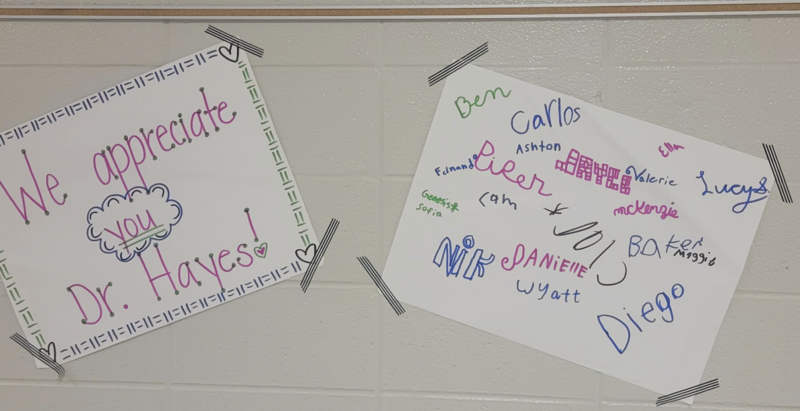 We appreciate
you
Dr. Hayes!
Ben
Carlos
Ashton
Ella
Fernando
Piper
Valerie
Lucy S.
Genesis
Sofia
Cam
mckenzie
Baker
Maggie
Nik
DANiEllE
wyatt
Diego